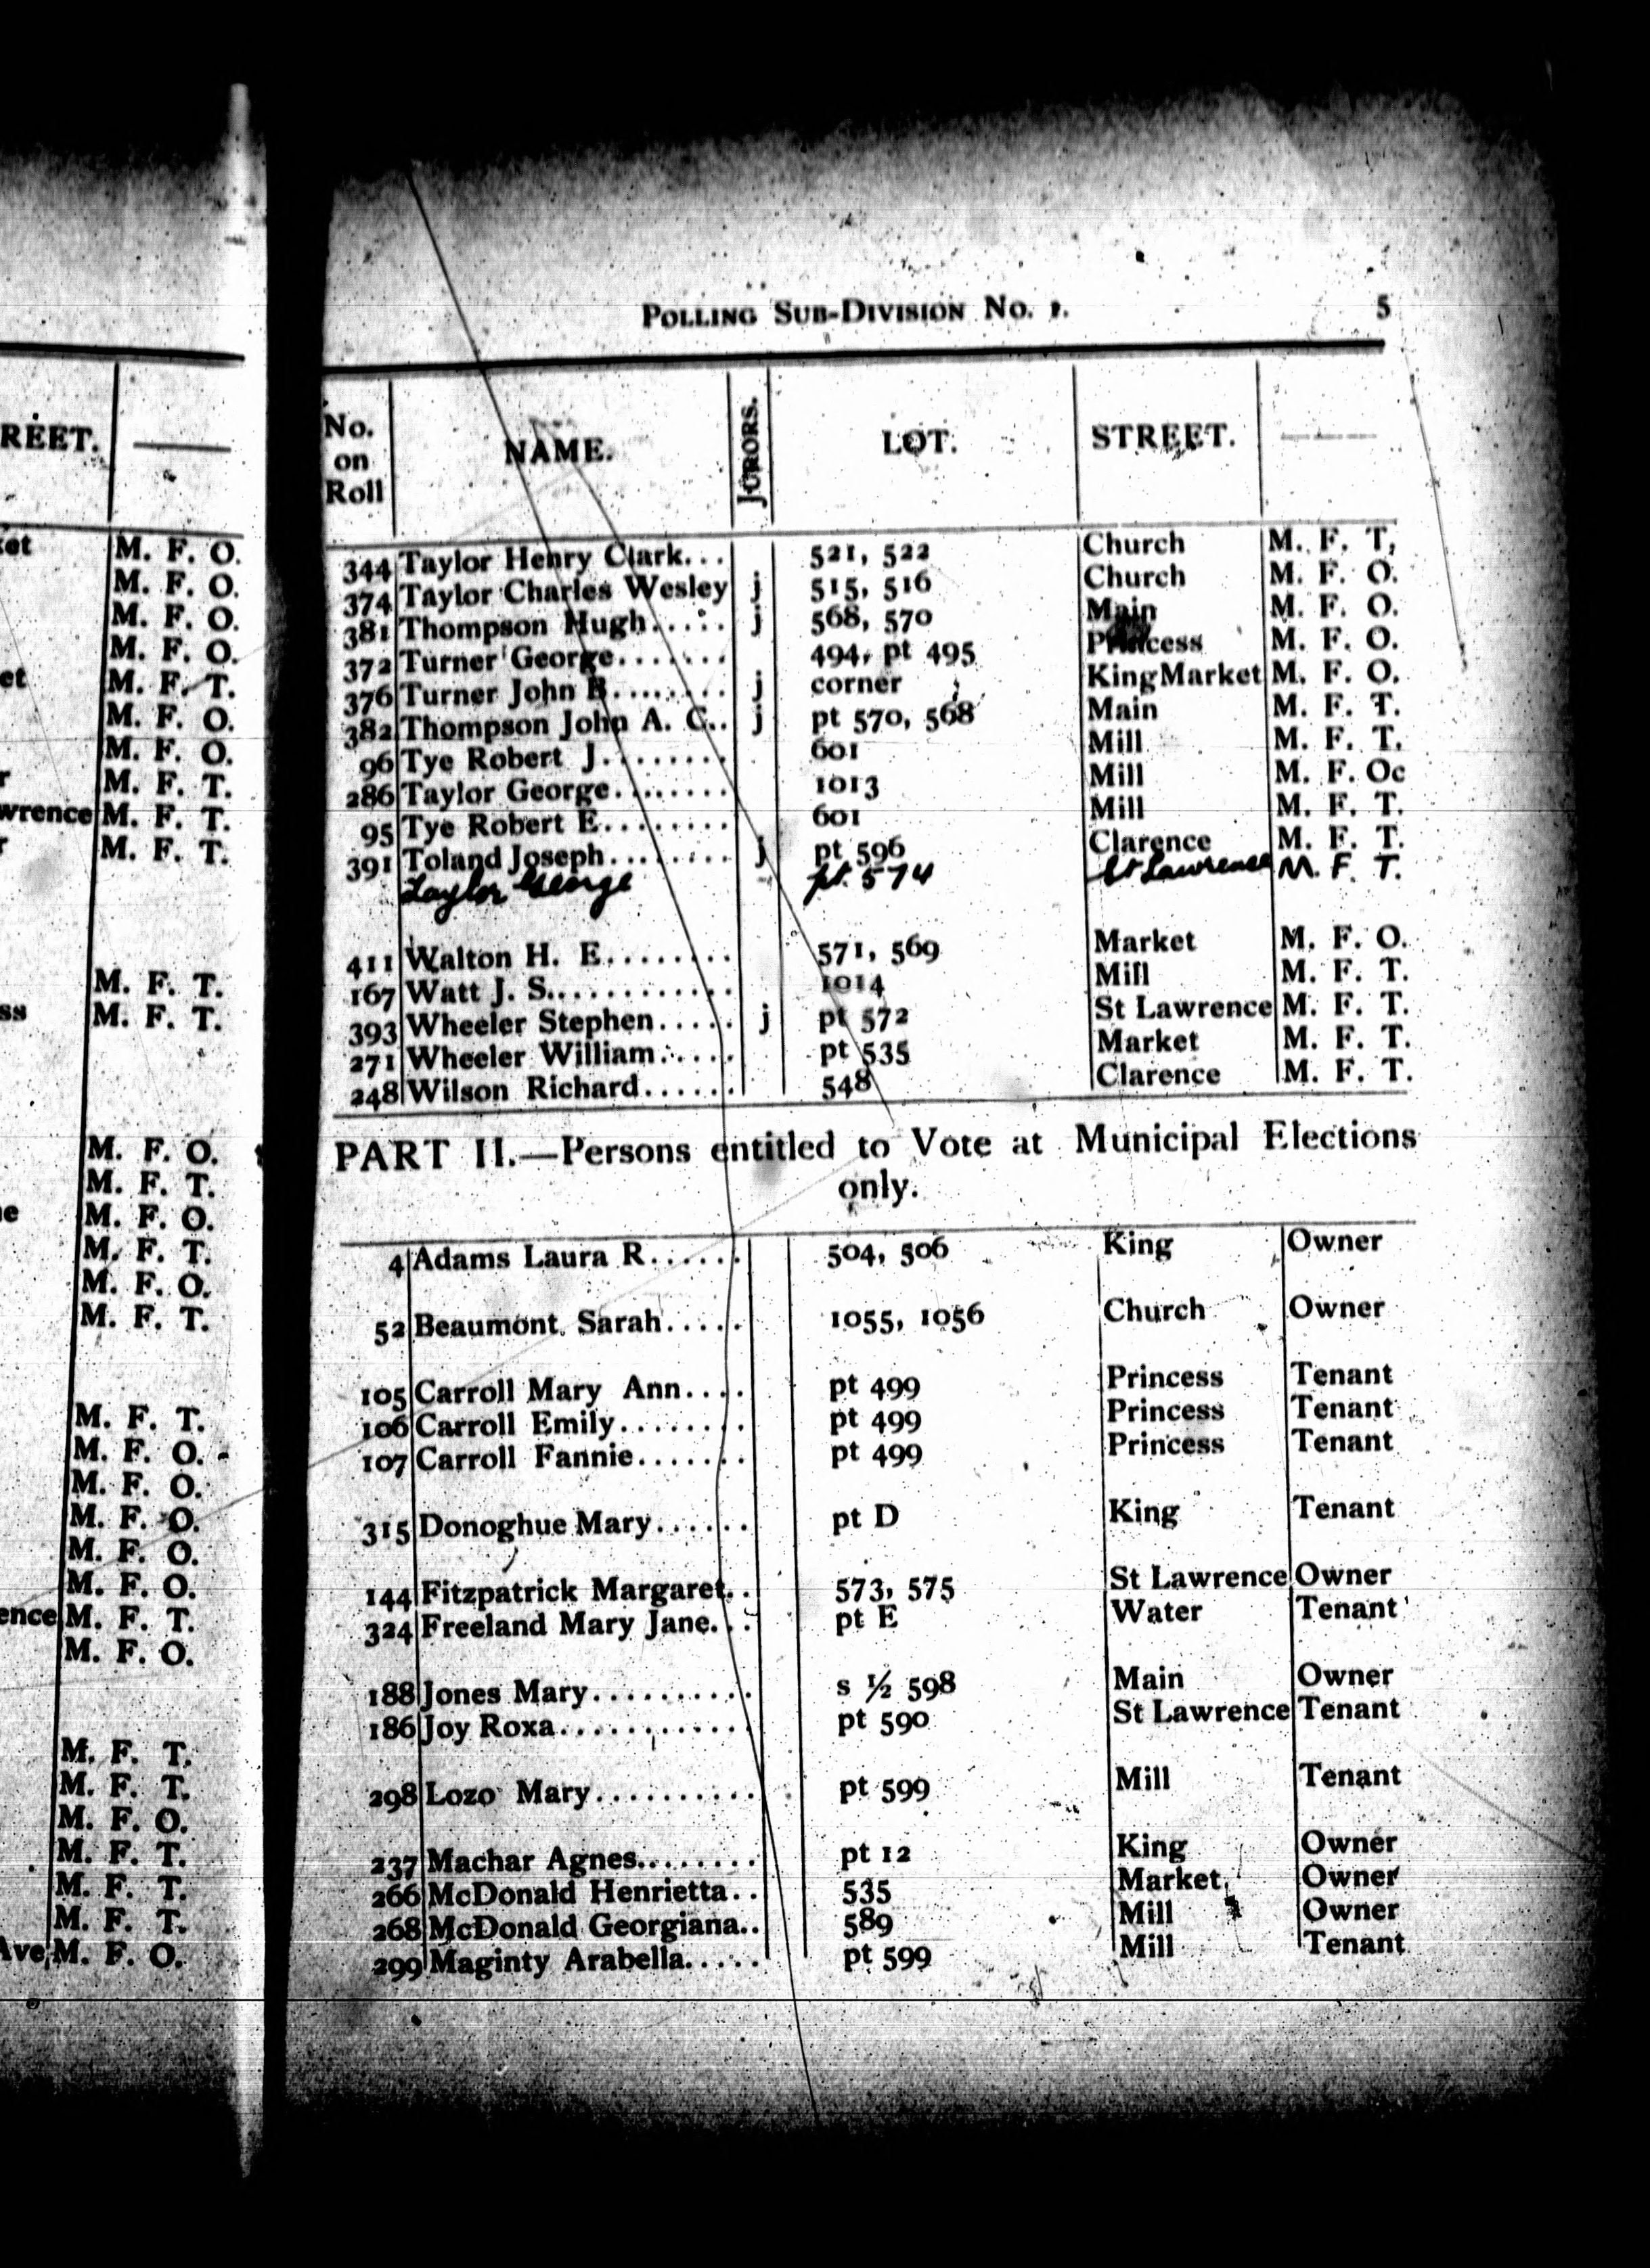 REET.
et M. F. O.
M. F. O.
M. F. O.
M. F. O.
et M. F. T.
M. F. O.
M. F. O.
r M. F. T.
wrence M. F. T.
r M. F. T.
M. F. T.
ss M. F. T.
M. F. O.
M. F. T.
e M. F. O.
M. F. T.
M. F. O.
M. F. T.
M. F. T.
M. F. O.
M. F. O.
M. F. O.
M. F. O.
M. F. O.
ence M. F. T.
M. F. O.
M. F. T.
M. F. T.
M. F. O.
M. F. T.
M. F. T.
M. F. T.
Ave, M. F. O.
POLLING SUB-DIVISION No. 1. 5
No. on Roll NAME. JURORS. LOT. STREET.
344 Taylor Henry Clark... 521, 522 Church M. F. T,
374 Taylor Charles Wesley j 515, 516 Church M. F. O.
381 Thompson Hugh..... j 568, 570 Main M. F. O.
372 Turner George....... 494, pt 495 Princess M. F. O.
376 Turner John B........ j corner KingMarket M. F. O.
382 Thompson John A. C.. j pt 570, 568 Main M. F. T.
96 Tye Robert J........ 601 Mill M. F. T.
286 Taylor George........ 1013 Mill M. F. Oc
95 Tye Robert E........ 601 Mill M. F. T.
391 Toland Joseph........ j pt 596 Clarence M. F. T.
Taylor George pt. 574 St Lawrence M. F. T.
411 Walton H. E........ 571, 569 Market M. F. O.
167 Watt J. S........... 1014 Mill M. F. T.
393 Wheeler Stephen..... j pt 572 St Lawrence M. F. T.
271 Wheeler William..... pt 535 Market M. F. T.
248 Wilson Richard...... 548 Clarence M. F. T.
PART II.—Persons entitled to Vote at Municipal Elections
only.
4 Adams Laura R...... 504, 506 King Owner
52 Beaumont Sarah..... 1055, 1056 Church Owner
105 Carroll Mary Ann.... pt 499 Princess Tenant
106 Carroll Emily........ pt 499 Princess Tenant
107 Carroll Fannie....... pt 499 Princess Tenant
315 Donoghue Mary...... pt D King Tenant
144 Fitzpatrick Margaret.. 573, 575 St Lawrence Owner
324 Freeland Mary Jane... pt E Water Tenant
188 Jones Mary.......... s ½ 598 Main Owner
186 Joy Roxa............ pt 590 St Lawrence Tenant
298 Lozo Mary.......... pt 599 Mill Tenant
237 Machar Agnes........ pt 12 King Owner
266 McDonald Henrietta.. 535 Market Owner
268 McDonald Georgiana.. 589 Mill Owner
299 Maginty Arabella..... pt 599 Mill Tenant